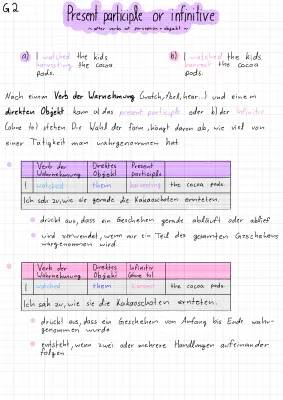 G2
Present participle or infinitive
~ after verbs of perception + object ~
a) I watched the kids
harvesting the cocoa
pods.
b) I watched the kids
harvest the cocoa
pods.
Nach einem Verb der Warnehmung (watch, feel, hear...) und einem
direkten Objekt kann a) das present participle oder b) der Infinitiv
(ohne to) stehen. Die Wahl der Form hängt davon ab, wie viel von
einer Tätigkeit man wahrgenommen hat.
Verb der Wahrnehmung Direktes Objekt Present participle
I watched them harvesting the cocoa pods.
Ich sah zu, wie sie gerade die Kakaoschoten ernteten.
drückt aus, dass ein Geschehen gerade abläuft oder ablief
wird verwendet, wenn nur ein Teil des gesamten Geschehens
wargenommen wird
Verb der Wahrnehmung Direktes Objekt Infinitiv (ohne to)
I watched them harvest the cocoa pods.
Ich sah zu, wie sie die Kakaoschoten ernteten.
drückt aus, dass ein Geschehen von Anfang bis Ende wahr-
genommen wurde
entsteht, wenn zwei oder mehrere Handlungen aufeinander
folgen